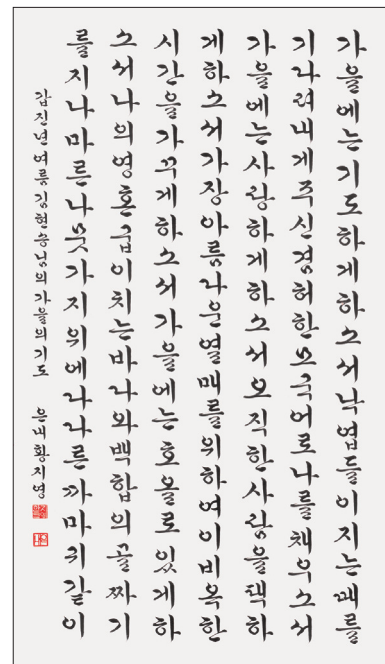 가을에는기도하게하소서낙엽들이지는때를
기다려내게주신겸허한모국어로나를채우소서
가을에는사랑하게하소서오직한사람을택하
게하소서가장아름다운열매를위하여이비옥한
시간을가꾸게하소서가을에는호올로있게하
소서나의영혼굽이치는바다와백합의골짜기
를지나마른나뭇가지위에다다른까마귀같이
갑진년여름김현승님의가을의기도 은내황지영